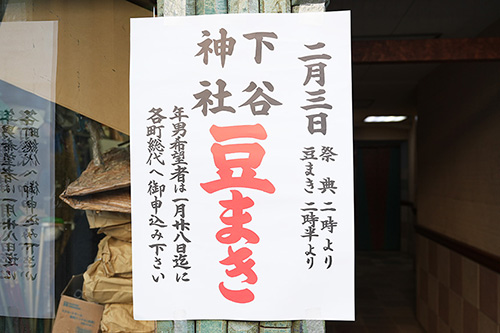 二月三日
祭典 二時より
豆まき 二時半より
下谷
神社
豆まき
年男希望者は一月廿八日迄に
各町総代へ御申込み下さい